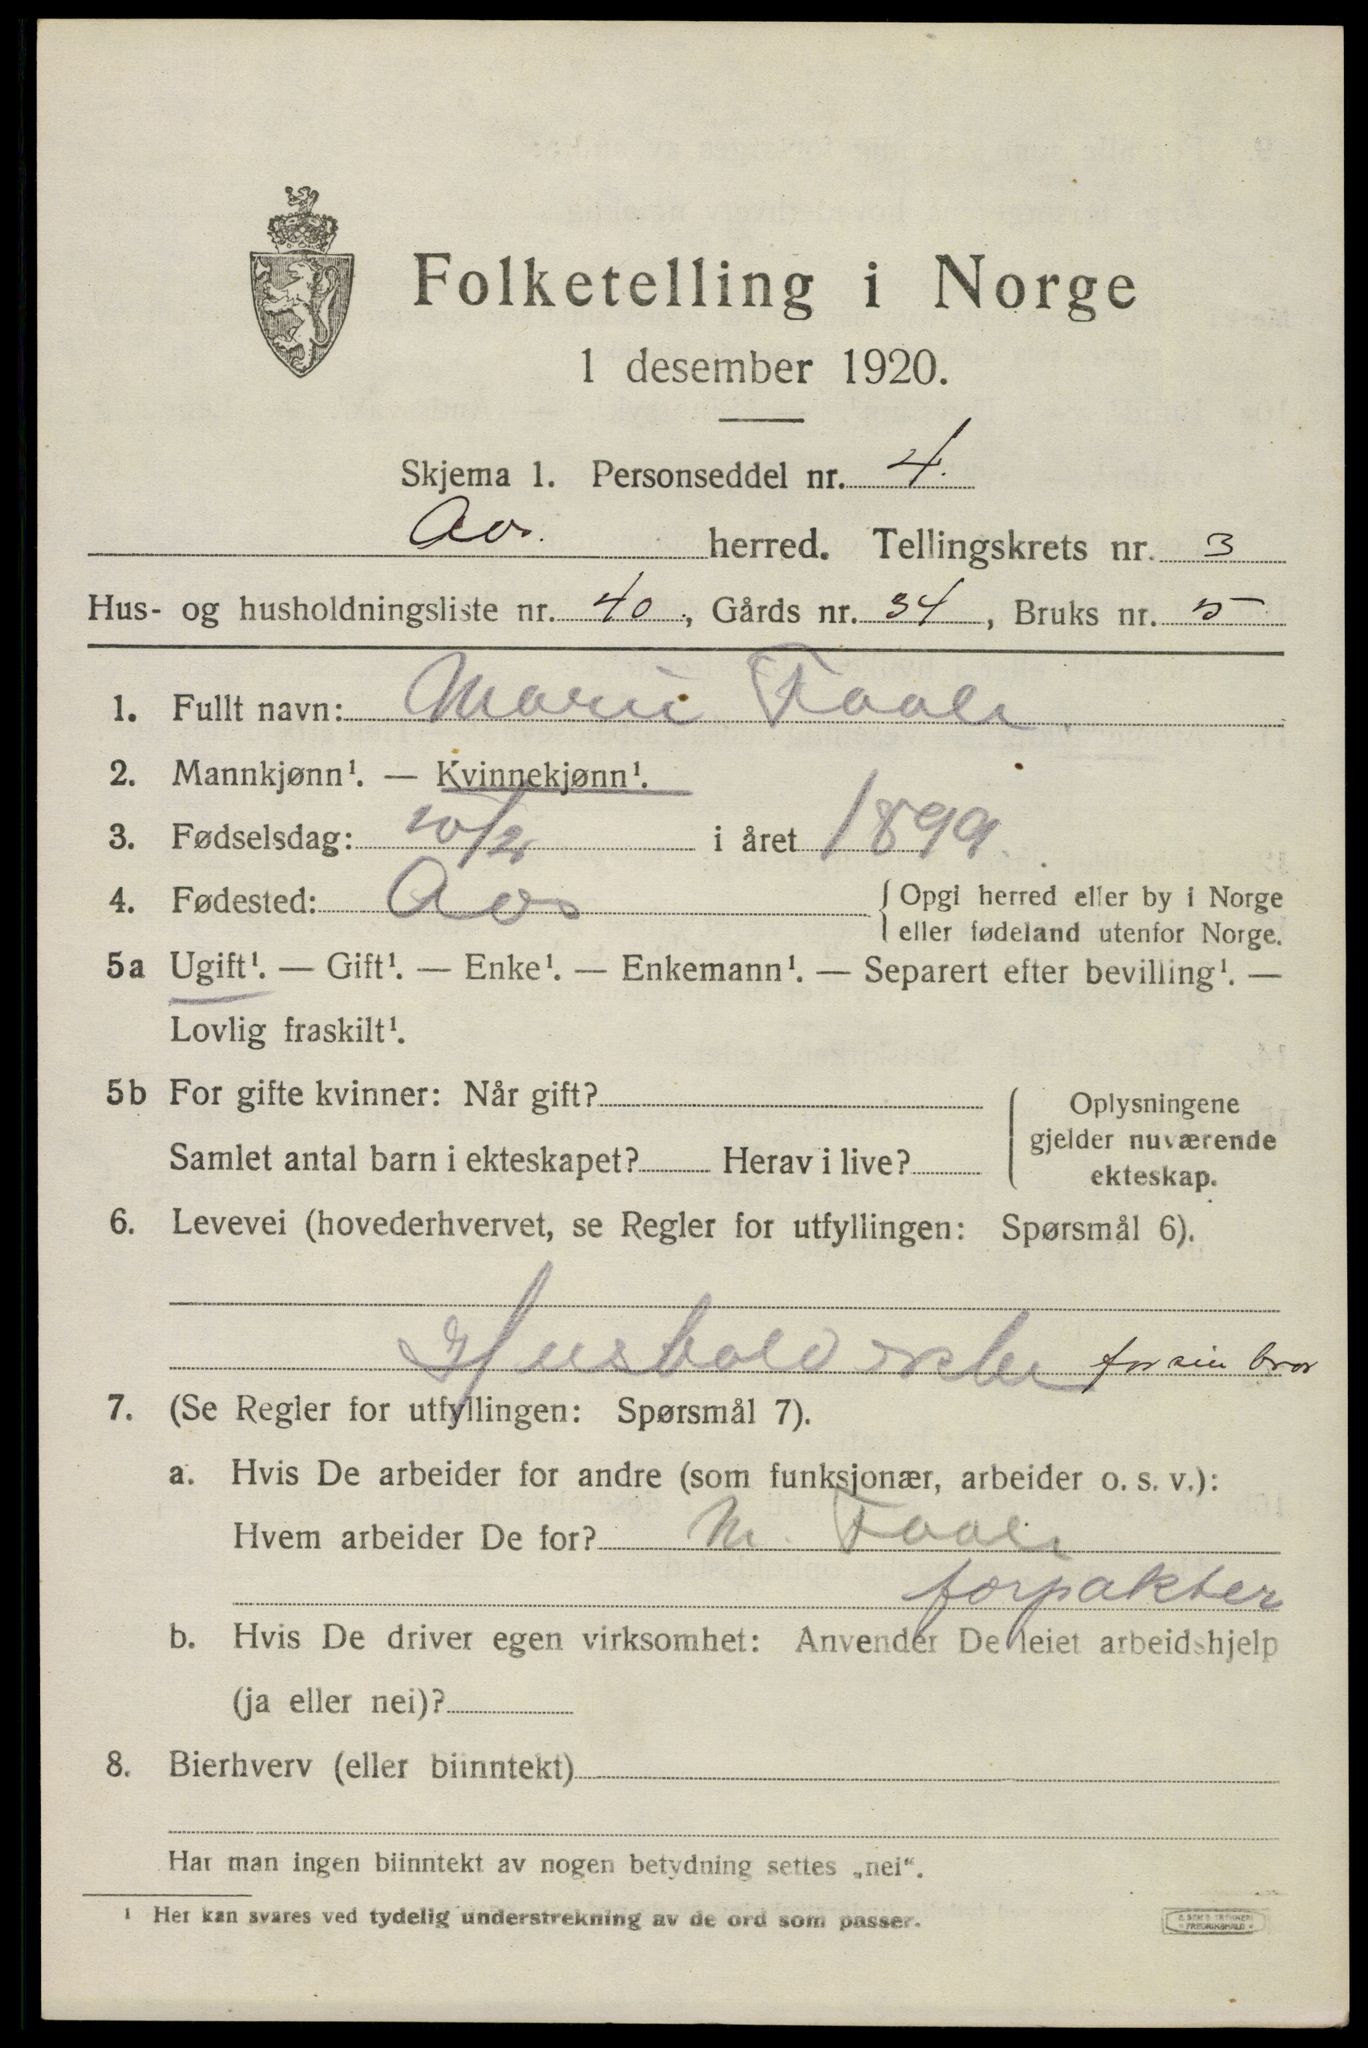 Folketelling i Norge
1 desember 1920.
Skjema 1. Personseddel nr. 4.
Aas. herred. Tellingskrets nr. 3
Hus- og husholdningsliste nr. 40, Gårds nr. 34, Bruks nr. 5
1. Fullt navn: Marie
2. Mannkjønn¹. — Kvinnekjønn¹.
3. Fødselsdag: i året 1899
4. Fødested: Aas { Opgi herred eller by i Norge
eller fødeland utenfor Norge.
5a Ugift¹. — Gift¹. — Enke¹. — Enkemann¹. — Separert efter bevilling¹. —
Lovlig fraskilt¹.
5b For gifte kvinner: Når gift? { Oplysningene
gjelder nuværende
Samlet antal barn i ekteskapet? Herav i live?
ekteskap.
6. Levevei (hovederhvervet, se Regler for utfyllingen: Spørsmål 6).
for sin bror
7. (Se Regler for utfyllingen: Spørsmål 7).
a. Hvis De arbeider for andre (som funksjonær, arbeider o. s. v.):
Hvem arbeider De for? M.
forpakter
b. Hvis De driver egen virksomhet: Anvender De leiet arbeidshjelp
(ja eller nei)?
8. Bierhverv (eller biinntekt)
Har man ingen biinntekt av nogen betydning settes „nei“.
¹ Her kan svares ved tydelig understrekning av de ord som passer.
FREDRIKSHALD